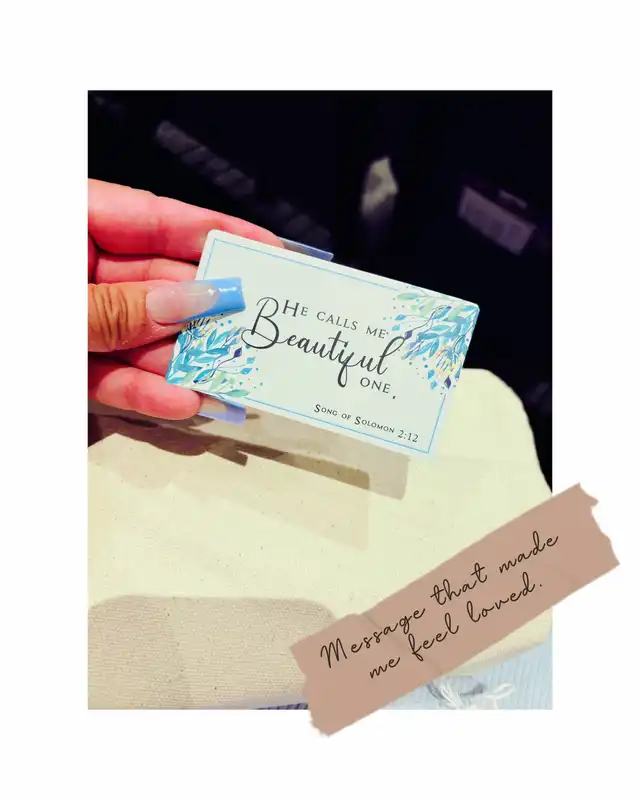 He calls me
Beautiful
one.
Song of Solomon 2:12
Message that made
me feel loved.